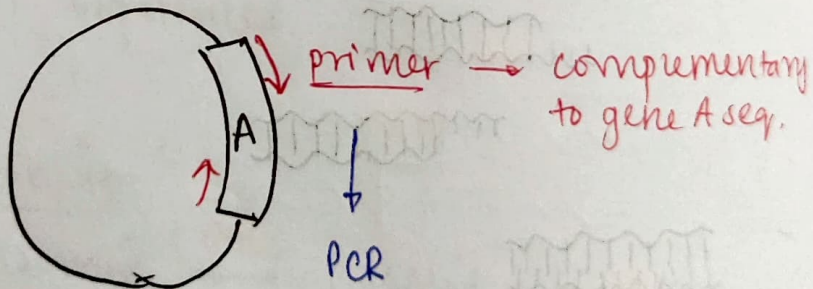 primer → complementary
to gene A seq.
A
PCR